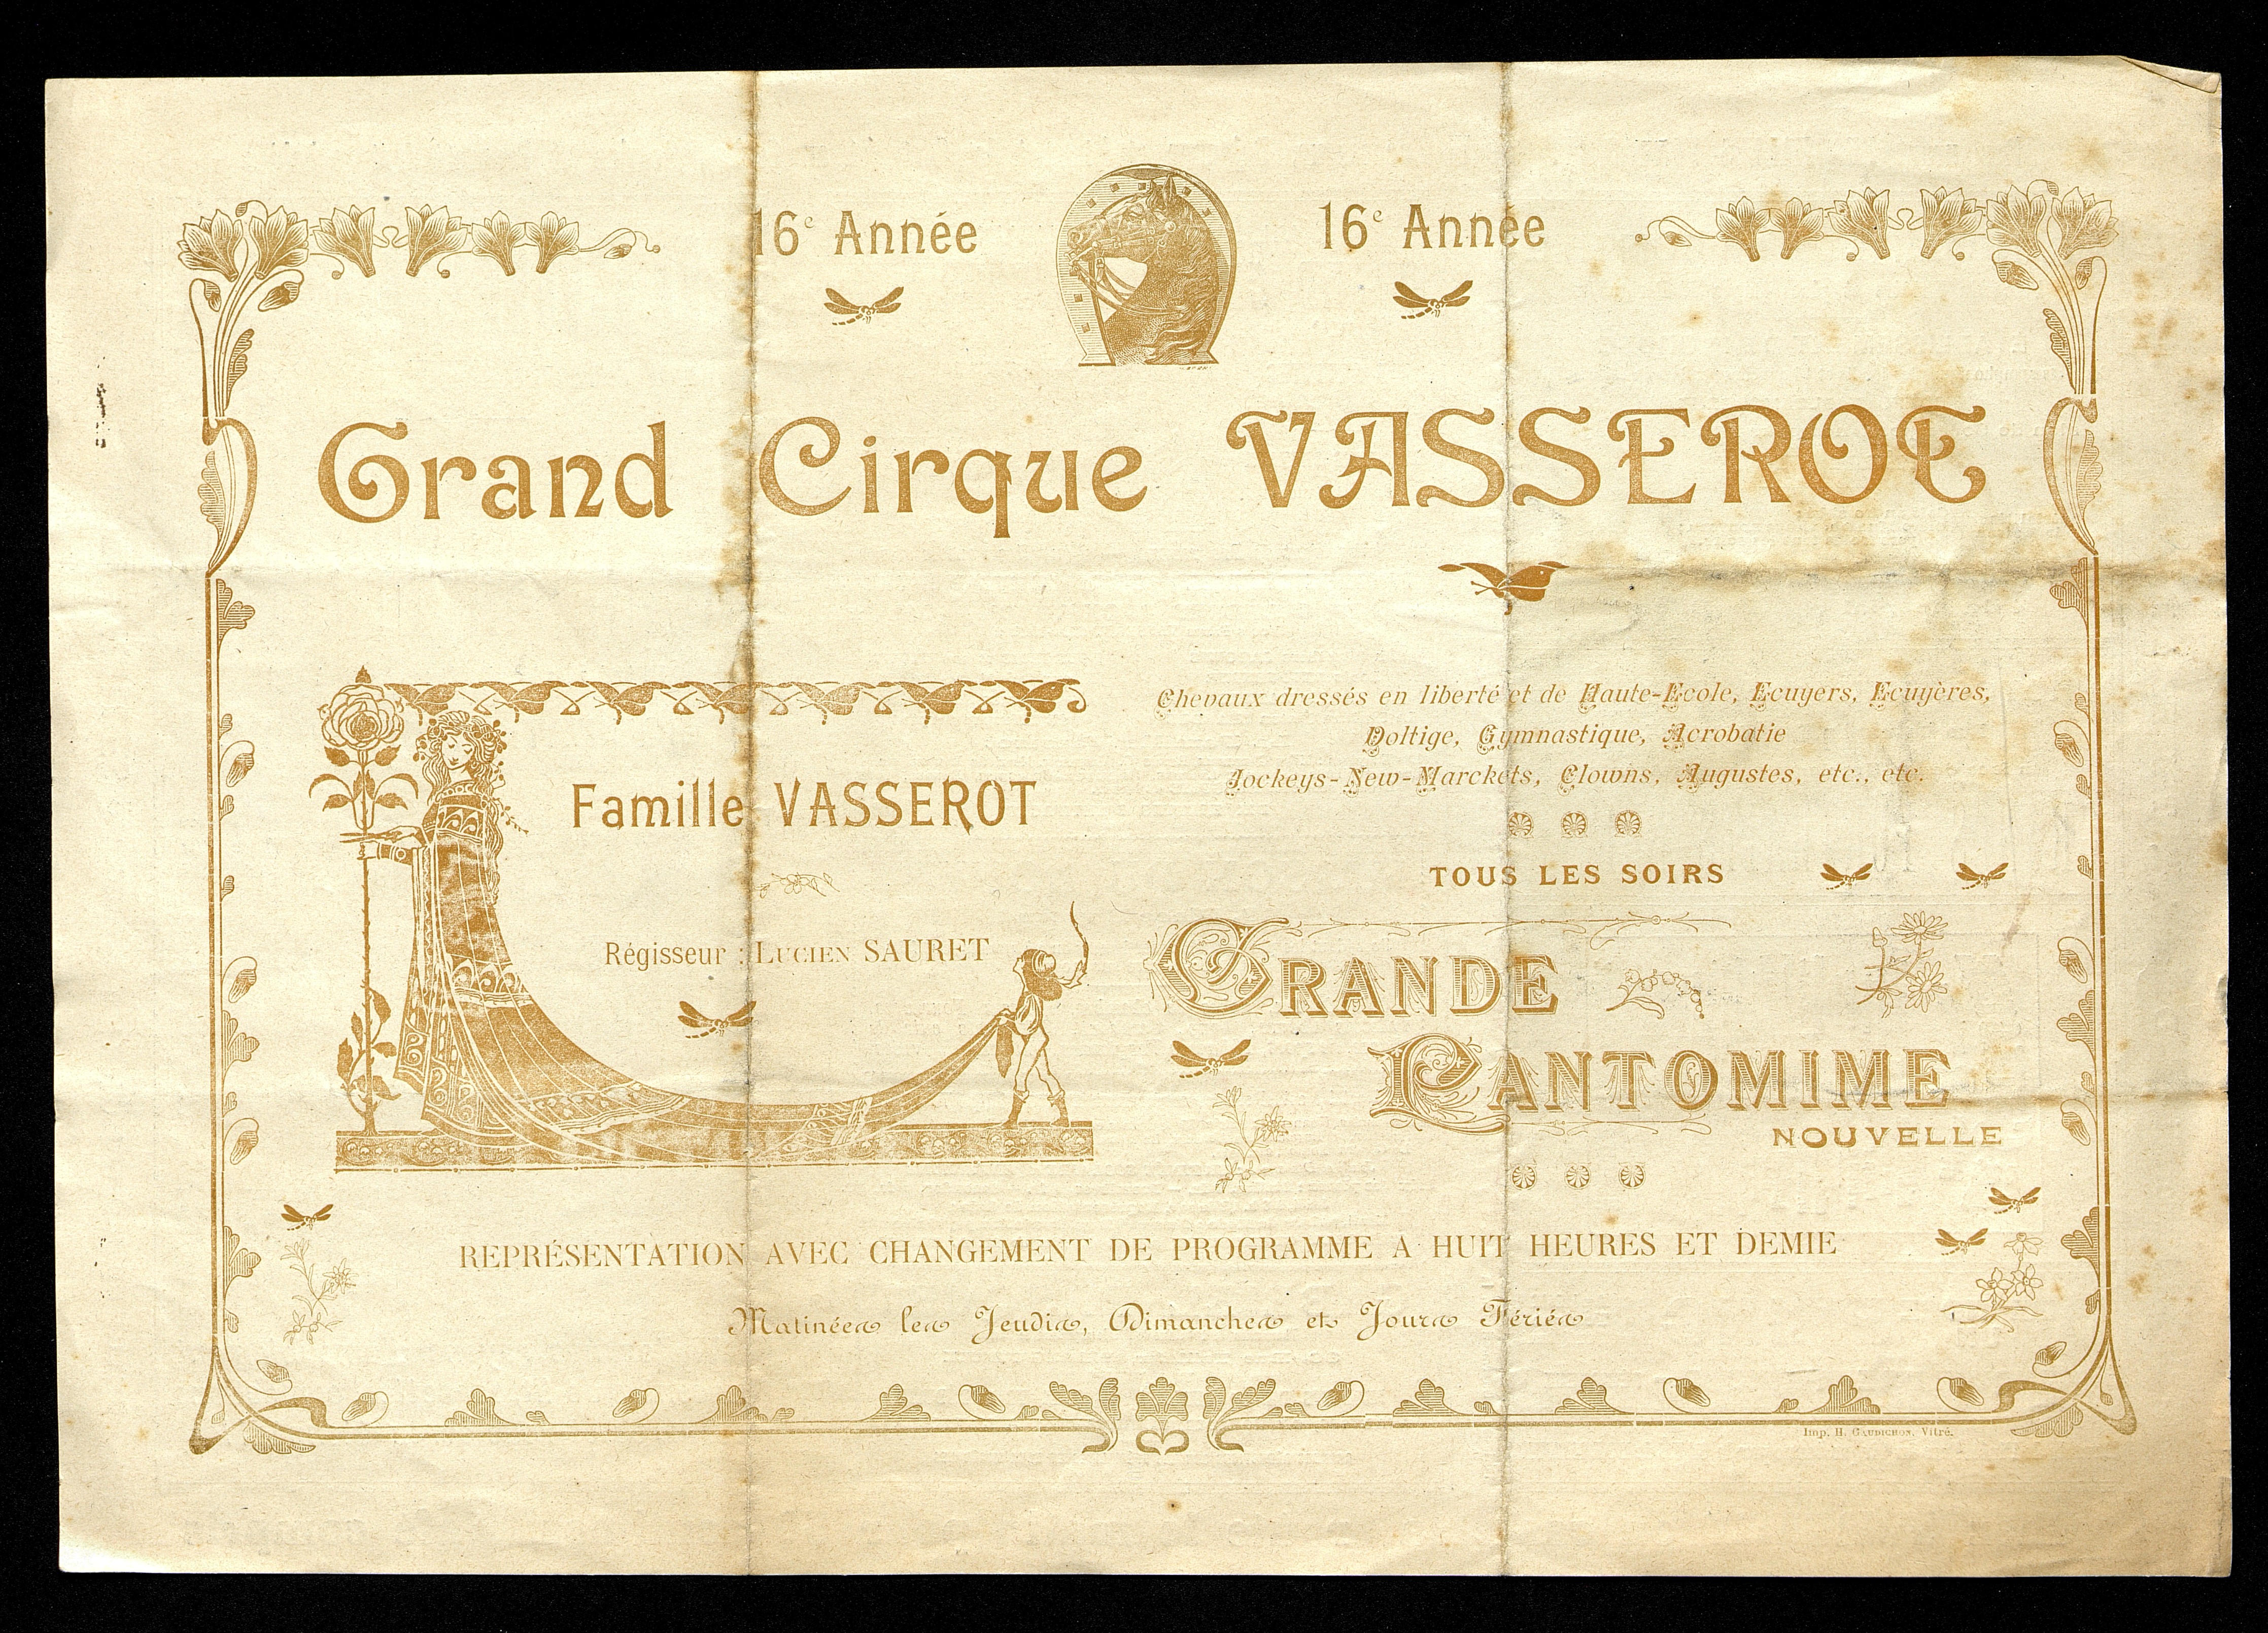 16e Année
16e Année
Grand Cirque VASSEROT
Famille VASSEROT
Régisseur : LUCIEN SAURET
Chevaux dressés en liberté et de Haute-Ecole, Ecuyers, Ecuyères,
Voltige, Gymnastique, Acrobatie
Jockeys-New-Marckets, Clowns, Augustes, etc., etc.
TOUS LES SOIRS
GRANDE
PANTOMIME
NOUVELLE
REPRÉSENTATION AVEC CHANGEMENT DE PROGRAMME A HUIT HEURES ET DEMIE
Matinées les Jeudis, Dimanches et Jours Fériés
Imp. H. GAUDICHON, Vitré.